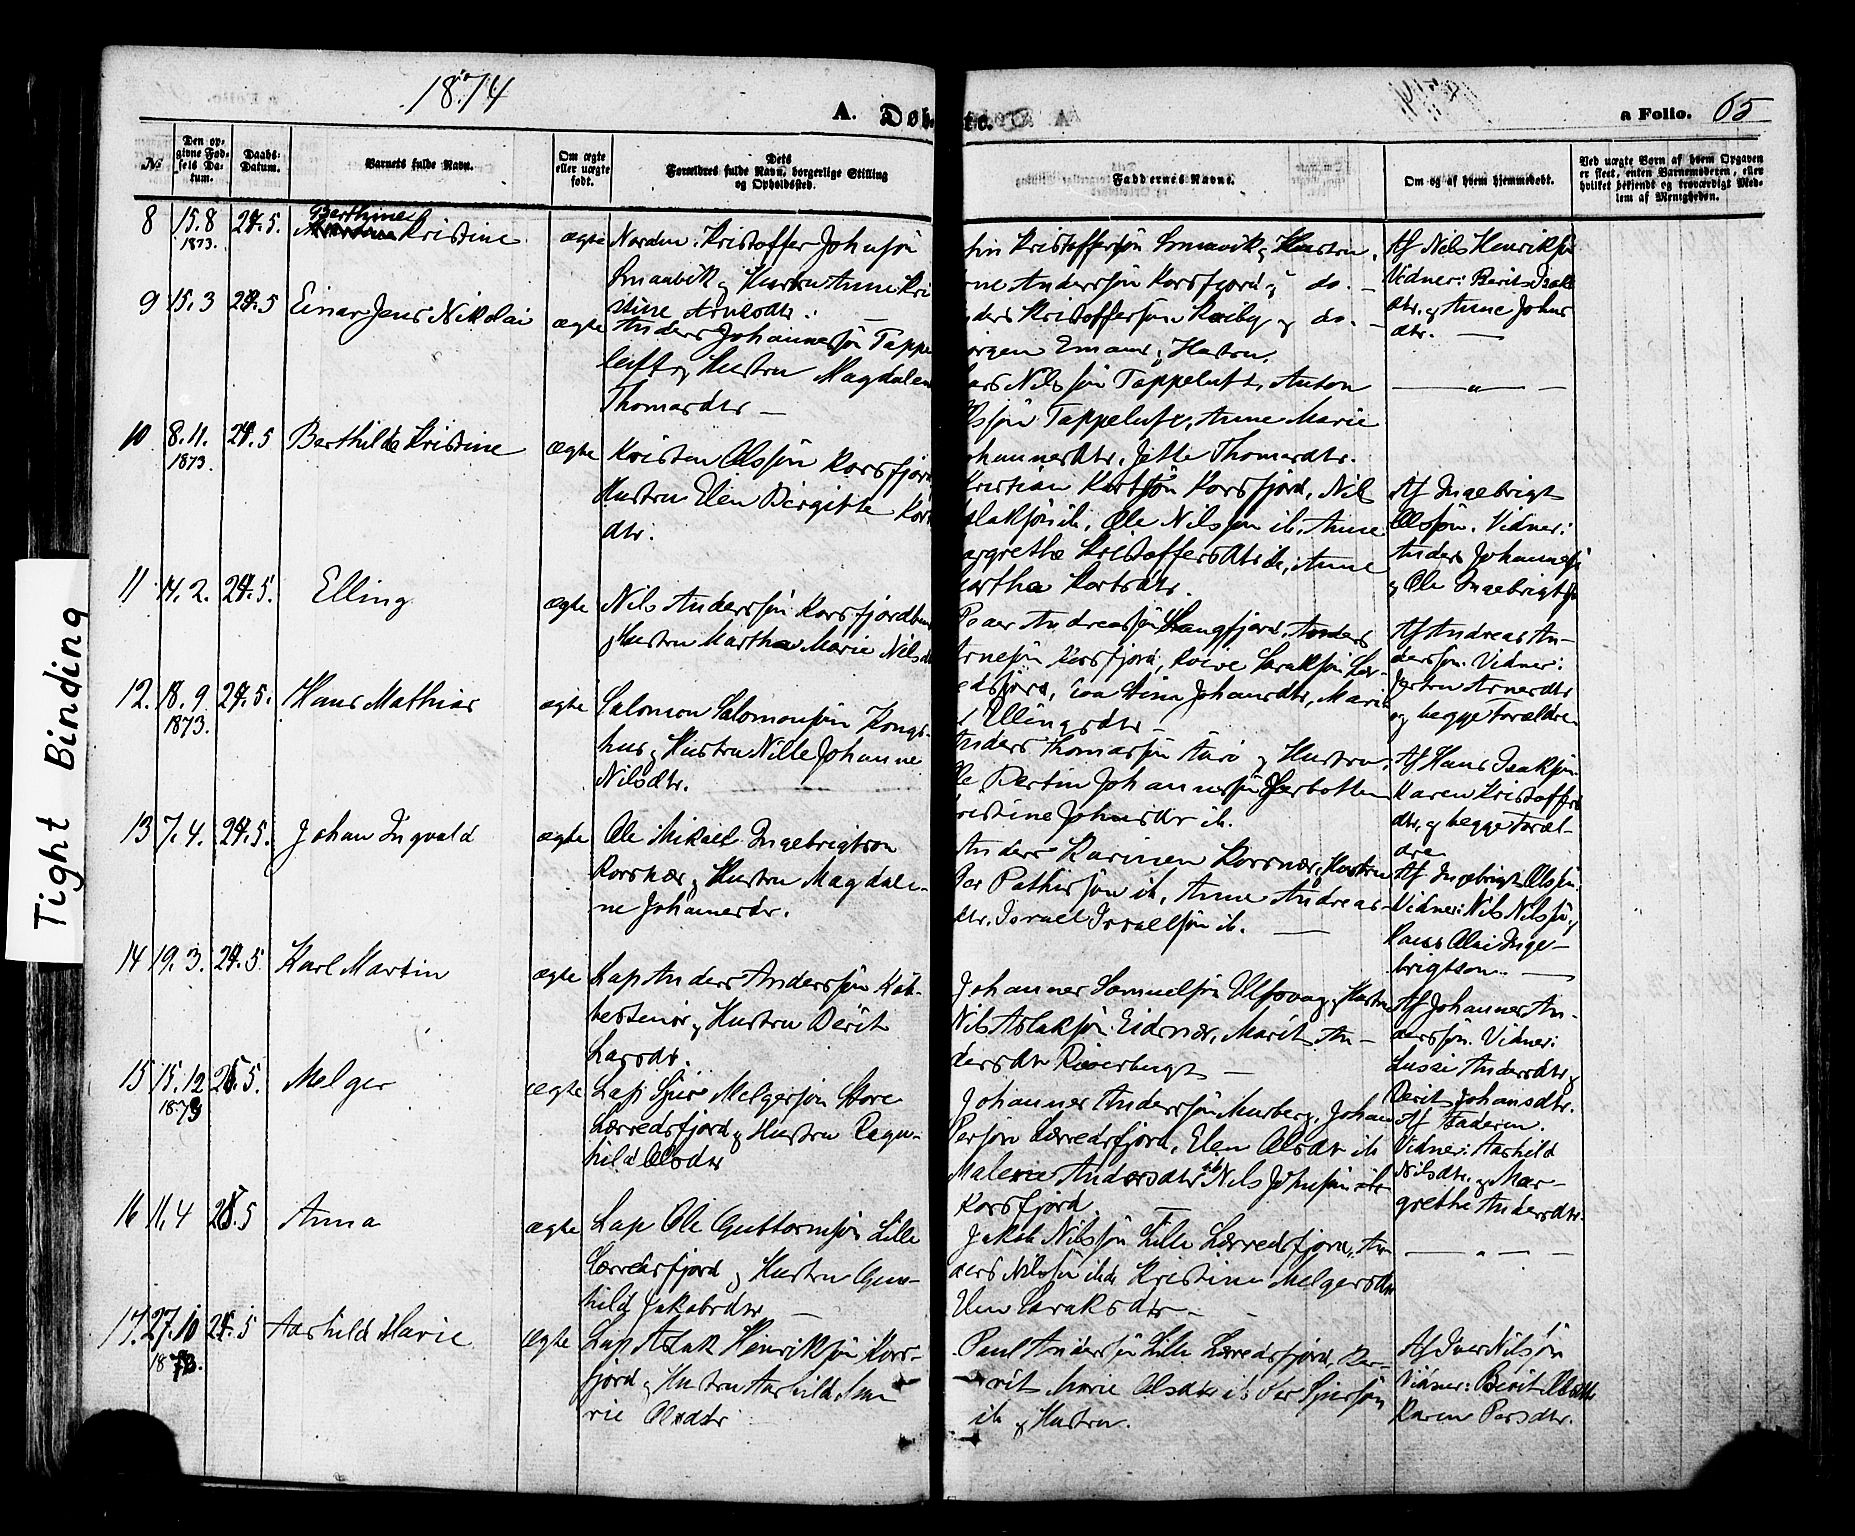 1874
A. Døb te.
a Folio. 65
№
Den op-
givne Fød-
sels Da-
tum.
Daabs-
Datum.
Barnets fulde Navn.
Om ægte
eller uægte
født.
Dets
Forældres fulde Navn, borgerlige Stilling
og Opholdssted.
Faddernes Navne.
Om og af hvem hjemmedøbt.
Ved uægte Børn af hvem Opgaven
er skeet, enten Barnemoderen, eller
hvilket bekjendt og troværdigt Med-
lem af Menigheden.
8 15.8 1873. 24.5. Berthine Kristine ægte
Nordm. Kristoffer Johnsøn
Smaavik og Hustru Anne Kri
stine Arnesdtr.
Kristoffersøn Smaavik og Hustru,
Anderssøn Korsfjord og do. -
Kristoffersøn Raiby og do. -
Af Nils Henriksøn
Vidner: Berit Isak
dtr. og Anne Johns
dtr. —
9 15.3 24.5 Einar Jens Nikolai ægte
Anders Johannessøn Tappe
luft og Hustru Magdalen
Thomasdtr —
Emans og Hustru.
Nilssøn Tappeluft, Anton
ssøn Tappeluft, Anne Marie
ohannesdtr, Jette Thomasdtr.
— " —
10 8.11. 1873. 24.5 Berthilde Kristine ægte
Kristen Olssøn Korsfjord
Hustru Elen Birgitte Kort
dtr.
Kristian Kortsøn Korsfjord, Nils
slaksøn ib, Ole Nilssøn ib, Anne
argrethe Kristoffersdtr ib, Anne
artha Kortsdtr.
Af Ingebrigt
Olssøn. Vidner:
Anders Johannessøn
og Ole Ingebrigtsøn
11 14.2. 24.5. Elling ægte
Nils Anderssøn Korsfjordbun
og Hustru Martha Marie Nilsd
Peder Andreassøn Langfjord, Anders
rnesøn Korsfjord,
edsfjord, Johansdtr, Marie
Ellingsdtr —
Af Andreas An-
derssøn. Vidner:
Arnesdtr
og begge Forældre
12. 18.9 1873. 24.5. Hans Mathias ægte
Salomon Salomonsøn Kongs-
hus og Hustru Nille Johanne
Nilsdtr.
Anders Thomassøn Aarø og Hustru,
Ole Bertin Johannessøn
ristine Johnsdtr ib.
Af Hans Isaksøn
Karen Kristoffers
dtr, og begge Foræl-
dre
13 7.4. 24.5. Johan Ingvald ægte
Ole Mikael Ingebrigtson
Korsnær og Hustru Magdale-
ne Johannesdr.
Anders Karinen Korsnær, Hustru
Per Pathissøn ib, Anne Andreas-
dtr, Israel Israelsøn ib. —
Af Ingebrigt Olssøn.
Vidner: Nils Nilssøn og
Olai Inge-
brigtson. —
14 19.3. 24.5 Karl Martin ægte
Lap Anders Anderssøn
og Hustru Berit
Larsdtr.
Johannes Samuelsøn Ulfsvag og Hustru
Nils Aslaksøn Eidnær, Marit An-
dersdtr —
Af Johannes An-
derssøn. Vidner:
Andersdtr og
Berit Johansdtr.
15 15.12 1873 25.5. Melger ægte
Lap Sjur Melgersøn Store
Lerredsfjord og Hustru Ragn-
hild Olsdtr
Johannes Anderssøn Murberg, Johan
Persøn Lerredsfjord, Elen Olsdtr ib
Malene Andersdtr ib, Nils Johnsøn
Korsfjord —
Af Faderen.
Vidner: Aashild
Nilsdtr. og Mar-
grethe Andersdtr.
16 11.4 25.5 Anna ægte
Lap Ole Guttormsøn Lille
Lerredsfjord og Hustru Gun-
hild Jakobsdtr —
Jakob Nilssøn Lille Lerredsfjord, An
ders Nilssøn ib, Kristine Melgersdtr
Elen Isaksdtr —
— " —
17. 27.10 1873. 24.5 Aashild Marie ægte
Lap Aslak Henriksøn Kors-
fjord og Hustru Aashild Ma
rie Olsdtr
Paul Anderssøn Lille Lerredsfjord, Ber-
rit Marie Olsdtr ib, Per Sjursøn
ib og Hustru.
Af Iver Nilsøn
Vidner: Berit Olsdtr
Karen Persdtr.
Tight Binding